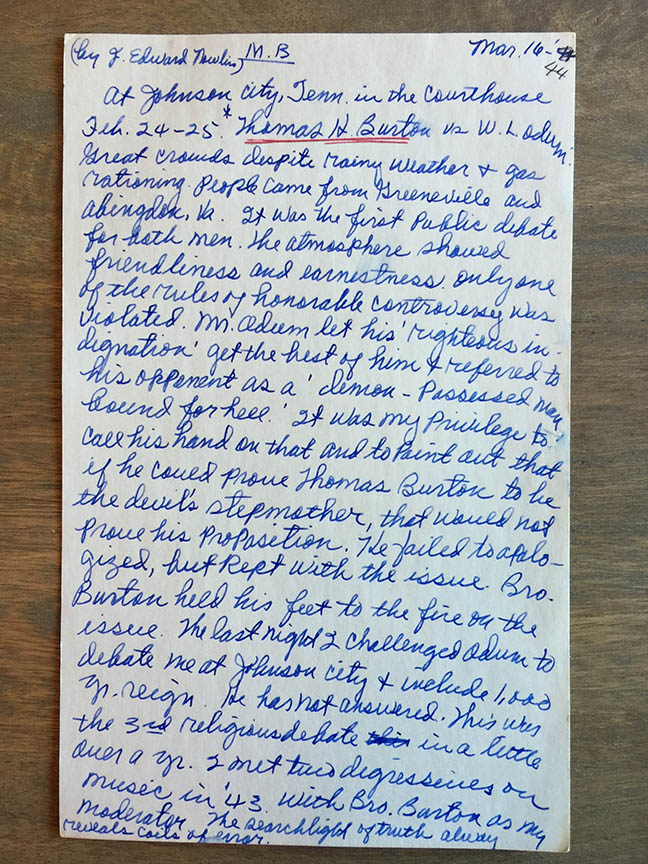 (by J. Edward Nowlin) M.B Mar. 16-44
At Johnson City, Tenn. in the Courthouse
Feb. 24-25.* Thomas H. Burton vs W. L. Odum.
Great crowds despite rainy weather + gas
rationing. People came from Greeneville and
Abingdon, Va. It was the first Public debate
for both men. The atmosphere showed
friendliness and earnestness. Only one
of the rules of honorable controversy was
violated. Mr. Odum let his 'righteous in-
dignation' get the best of him + referred to
his opponent as a 'demon-Possessed man,
bound for hell.' It was my Privilege to
call his hand on that and to Point out that
if he could prove Thomas Burton to be
the devil's stepmother, that would not
prove his Proposition. He failed to apolo-
gized, but kept with the issue. Bro.
Burton held his feet to the fire on the
issue. The last night I challenged Odum to
debate me at Johnson City + include 1,000
yr. reign. He has not answered. This was
the 3rd religious debate in a little
over a yr. I met two digressives on
music in '43. with Bro. Burton as my
moderator. The searchlight of truth alway
reveals coils of error.